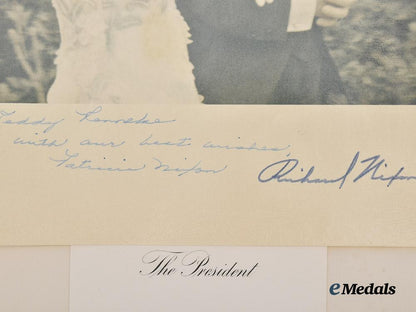 Teddy Lenneke
with our best wishes,
Patricia Nixon
Richard Nixon
The President
eMedals